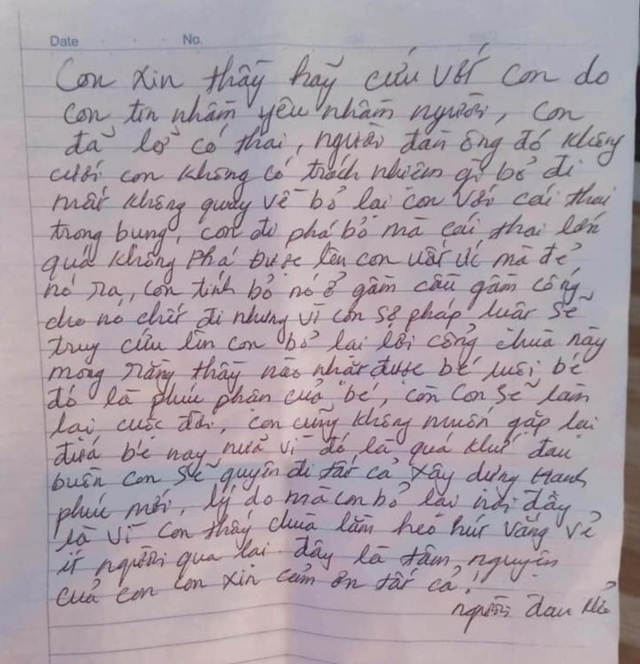 Date No.
Con xin thầy hãy cứu vớt con do
con tin nhầm yêu nhầm người, con
đã lỡ có thai, người đàn ông đó không
cưới con không có trách nhiệm gì bỏ đi
mất không quay về bỏ lại con với cái thai
trong bụng, con đi phá bỏ mà cái thai lớn
quá không phá được lên con uất ức mà đẻ
nó ra, con tính bỏ nó ở gầm cầu gầm cống
cho nó chết đi nhưng vì con sợ pháp luật sẽ
truy cứu lên con bỏ lại lối cổng chùa này
mong rằng thầy nào nhặt được bé nuôi bé
đó là phúc phận của bé, còn con sẽ làm
lại cuộc đời, con cũng không muốn gặp lại
đứa bé nay nữa vì đó là quá khứ đau
buồn con sẽ quyên đi tất cả xây dựng hạnh
phúc mới, lý do mà con bỏ lại nơi đây
là vì con thấy chùa lằm heo hút vắng vẻ
ít người qua lại đây là tâm nguyện
của con con xin cảm ơn tất cả!
người đau khổ